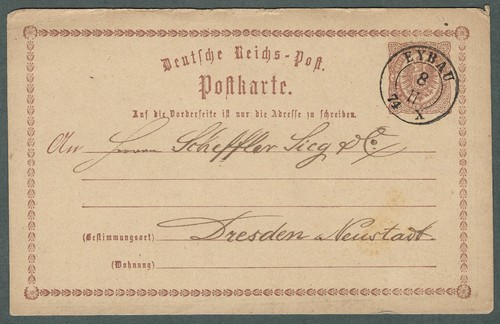 Deutsche Reichs-Post.
Postkarte.
EYBAU
8
11
X
74
Auf die Vorderseite ist nur die Adresse zu schreiben.
An Herrn Scheffler Sieg & Co.
(Bestimmungsort) Dresden Neustadt
(Wohnung)